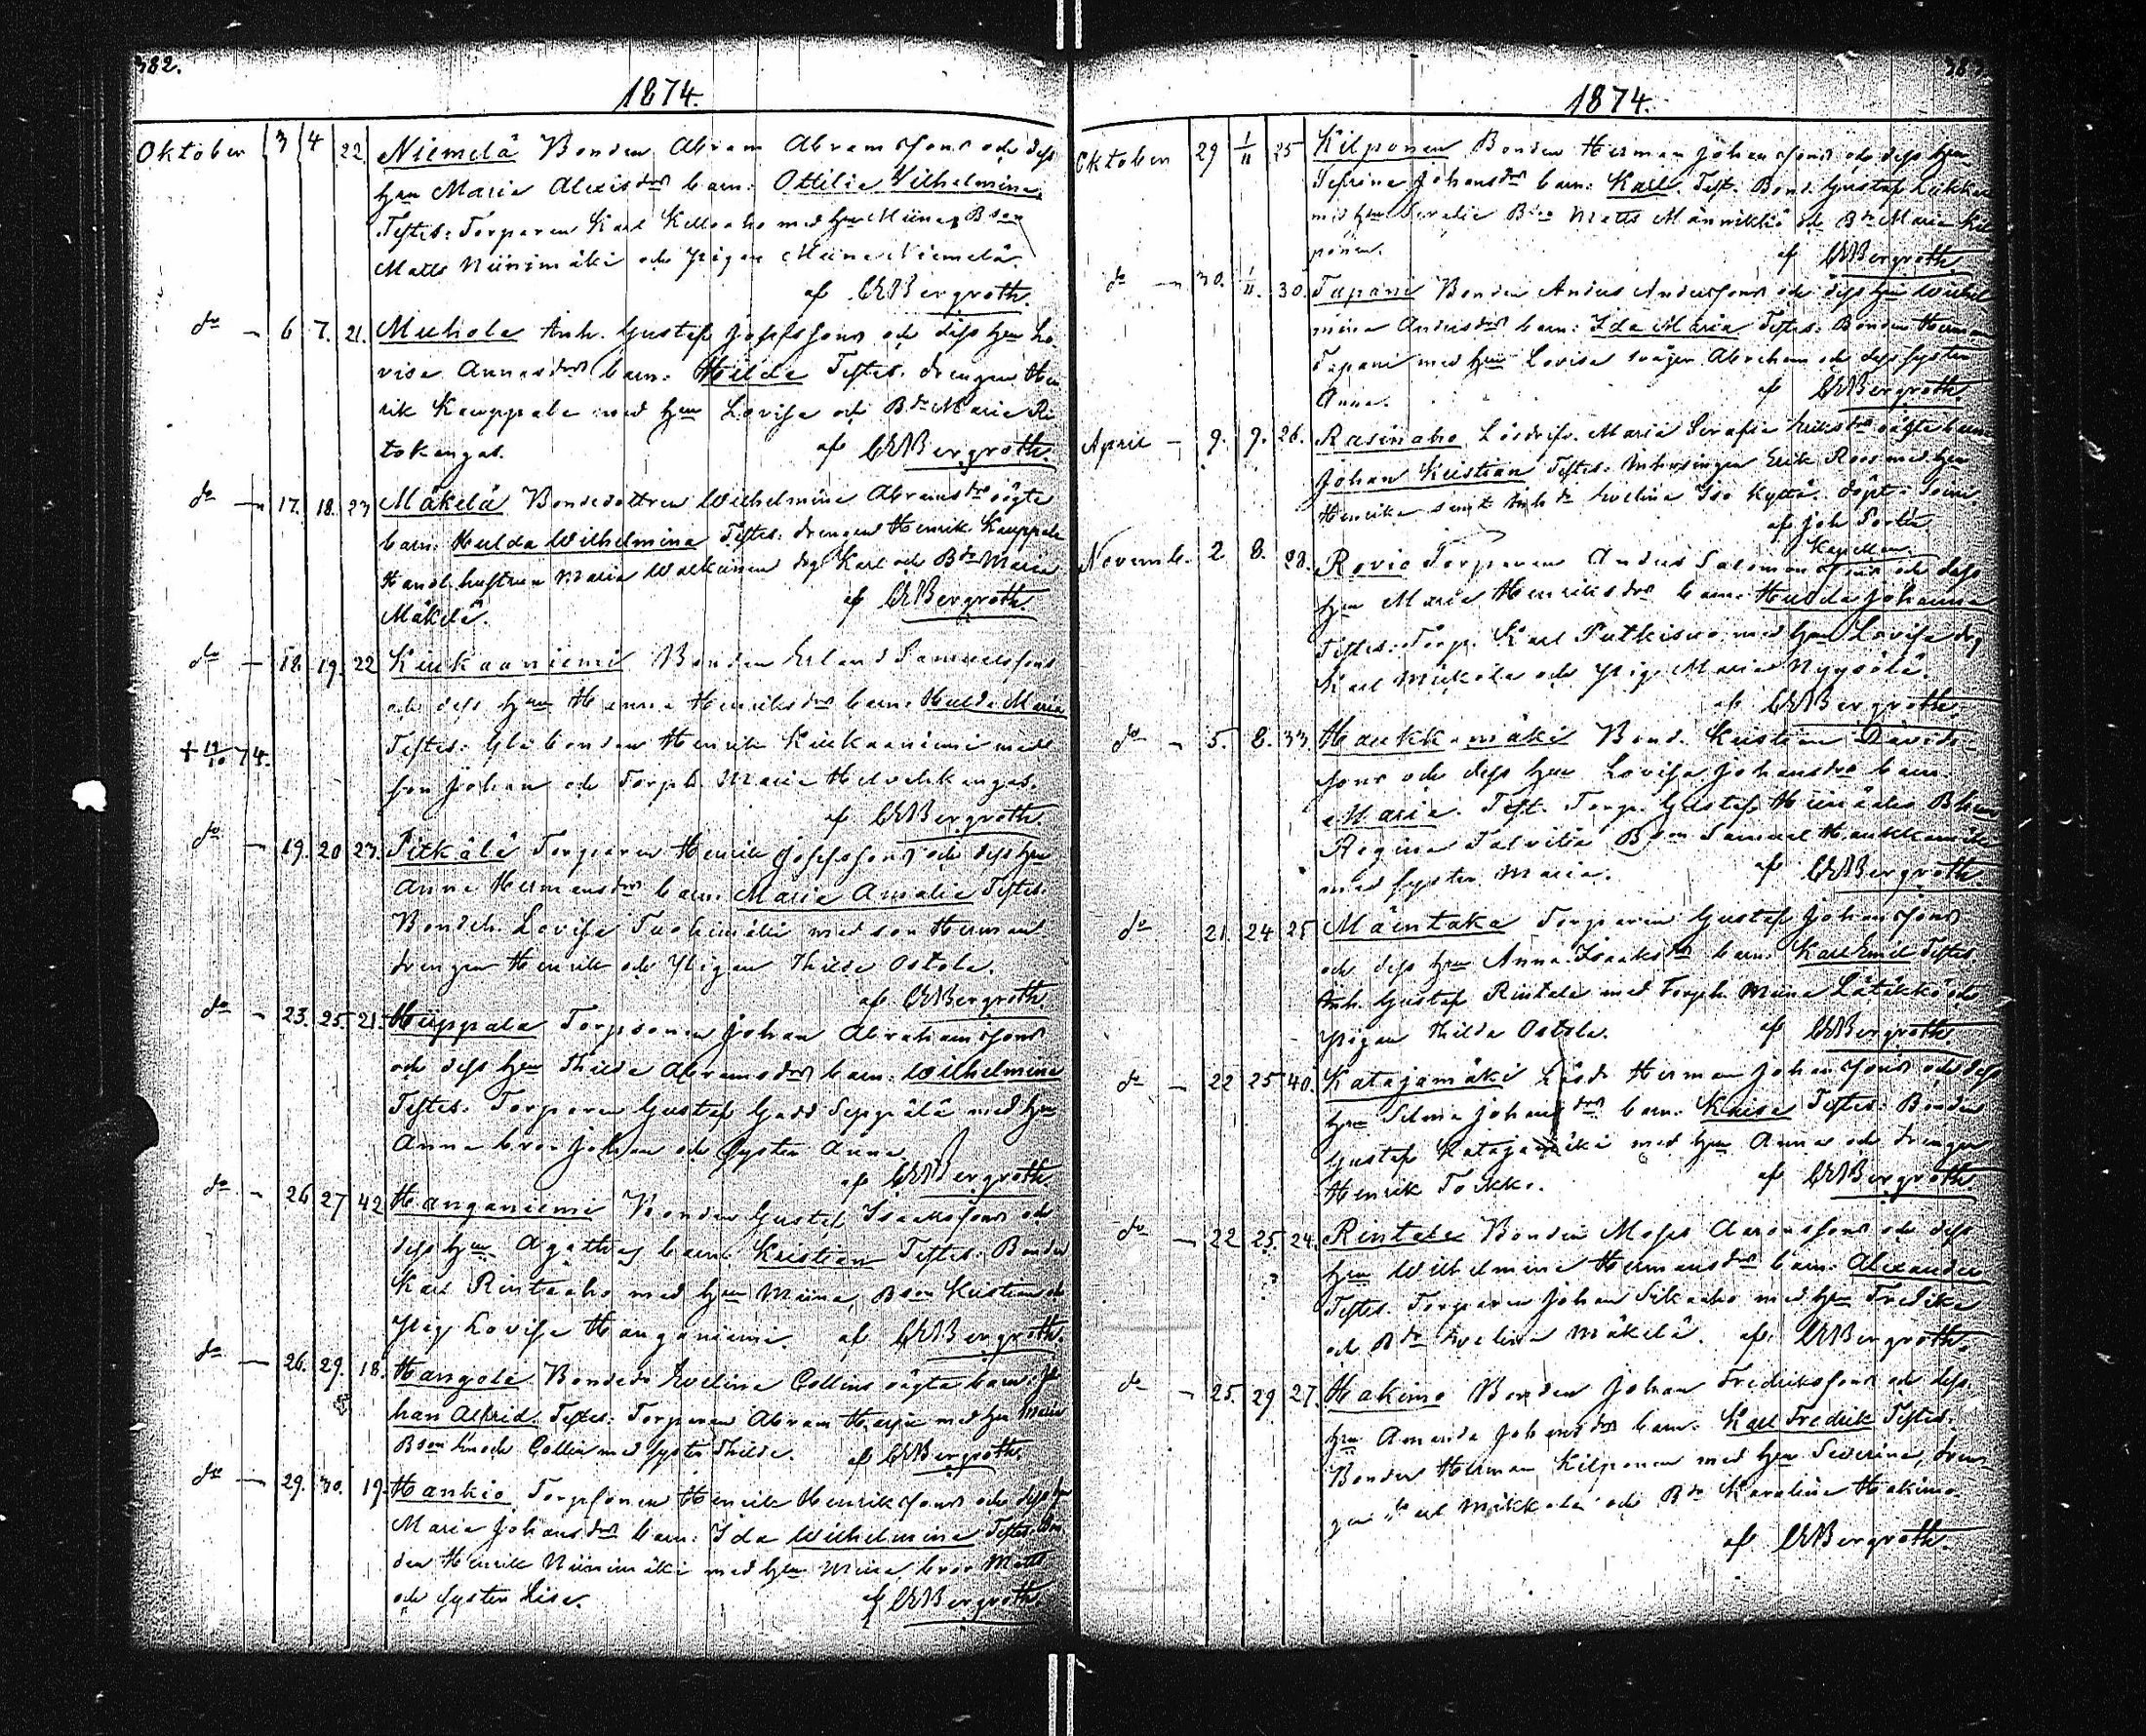 382.
1874.
Oktober 3 4 22 Niemelä Bonden Abram Abramssons och dess
hru Maria Alexisdrs barn: Ottilia Wilhelmina
Testes: Torparen Karl Kelloaho med hru Miina, Bson
Matts Niinimäki och pigan Miina Niemelä.
af CWBergroth.
do — 6 7. 21. Muhola Inh. Gustaf Josefssons och dess hru Lo-
visa Annasdrs barn: Hilda Testes: drengen Hen
rik Kauppala med hru Lovisa och Bdr Maria Ri
tokangas. af CWBergroth.
do — 17. 18. 23 Mäkelä Bondedottren Wilhelmina Abramsdrs oägta
barn: Hulda Wilhelmina Testes: drengen Henrik Kauppala
Handl. hustrun Maria Walkeinen drg Karl och Bdr Maria
Mäkelä. af CWBergroth
do — 18. 19. 22 Kiukaaniemi Bonden Erland Samuelssons
och dess hru Hanna Henriksdrs barn: Hulda Maria
+ 19/10 74. Testes: Gla bonden Henrik Kiukaaniemi med
son Johan och Torph. Maria Hetvelkangas.
af CWBergroth.
do — 19. 20 23. Pitkälä Torparen Henrik Josefssons och dess hru
Anna Hermansdrs barn: Maria Amalia Testes:
Bondeh. Lovisa Tuohimäki med son Herman
drengen Henrik och Pigan Thilda Ostola.
af CWBergroth
do — 23. 25. 21. Huppala Torpsonen Johan Abrahamssons
och dess hru Thilda Abramsdrs barn: Wilhelmina
Testes: Torparen Gustaf Gadd Seppälä med hru
Anna bror Johan och syster Anna
af CWBergroth.
do — 26 27 42 Hanganiemi Bonden Gustaf Isakssons och
dess hru Agathas barn: Kristian Testes: Bonden
Karl Rintaaho med hru Miina, Bson Kristian och
Pig. Lovisa Hanganiemi. af CWBergroth.
do — 26. 29. 18. Hangola Bondedr Evelina Collins oägta barn: Jo
han Alfrid. Testes: Torparen Abram Harju med hru Maria
Bson Enoch Collin med syster Thilda. af CWBergroth.
do — 29. 30. 19. Hankio Torpsonen Henrik Henrikssons och dess hru
Maria Johansdrs barn: Ida Wilhelmina Testes: Bon
den Henrik Niinimäki med hru Miina bror Matts
och syster Lisa. af CWBergroth.
1874.
Oktober 29 1/11 25 Kilponen Bonden Herman Johanssons och dess hru
Sefrina Johansdrs barn: Karl Test. Bond. Gustaf
med hru Serafia Bson Matts Männikkö och Bdr Maria Kil
ponen. af CWBergroth.
do — 30. 1/11. 30. Tapani Bonden Anders Anderssons och dess hru Wilhel
mina Andersdrs barn: Ida Maria Testes: Bonden Herman
Tapani med hru Lovisa svåger Abraham och dess syster
Anna. af CWBergroth.
April — 9. 9. 26. Rasinaho Lösdrifv. Maria Serafia Eriksdrs oägta barn
Johan Kristian Testes: Inhysingen Erik Roos med hru
Henrika samt Inhdr Evelina Iso Kyttä. döpt i Soini
af Joh
Kapellan.
Novemb. 2 8. 28. Rovio Torparen Anders Salomonssons och dess
hru Maria Henriksdrs barn: Hulda Johanna
Testes: Torp. Karl Putkisuo med hru Lovisa drg
Karl Mickola och Pig. Maria Nygyölä.
af CWBergroth.
do — 5. 8. 33 Haukkamäki Bond. Kristian Davids-
sons och dess hru Lovisa Johansdrs barn
Maria. Test. Torp. Gustaf Bhru
Regina Talvitia Bson Samuel Haukkamäki
med syster Maria. af CWBergroth.
do 21. 24 25 Mäentaka Torparen Gustaf Johanssons
och dess hru Anna Isaaksdrs barn: Karl Emil Testes:
Inh. Gustaf Rintala med Torph. Miina Lätäkkö och
Pigan Thilda Ostola. af CWBergroth.
do — 22 25 40. Katajamäki Lösdr Herman Johanssons och dess
hru Selma Johansdrs barn: Kaisa Testes: Bonden
Gustaf Katajamäki med hru Anna och drengen
Henrik Torkko. af CWBergroth.
do — 22 25. 24. Rintala Bonden Moses Aaronssons och dess
hru Wilhelmina Hermansdrs barn: Alexander
Testes: Torparen Johan Sikaaho med hru Fredika
och Bdr Evelina Mäkelä. af CWBergroth.
do — 25. 29 27. Hakimo Bonden Johan Fredrikssons och dess
hru Amanda Johansdrs barn: Karl Fredrik Testes:
Bonden Herman Kilponen med hru Severina, dren-
gen Karl Mikkola och Bdr Karolina Hakimo.
af CWBergroth.